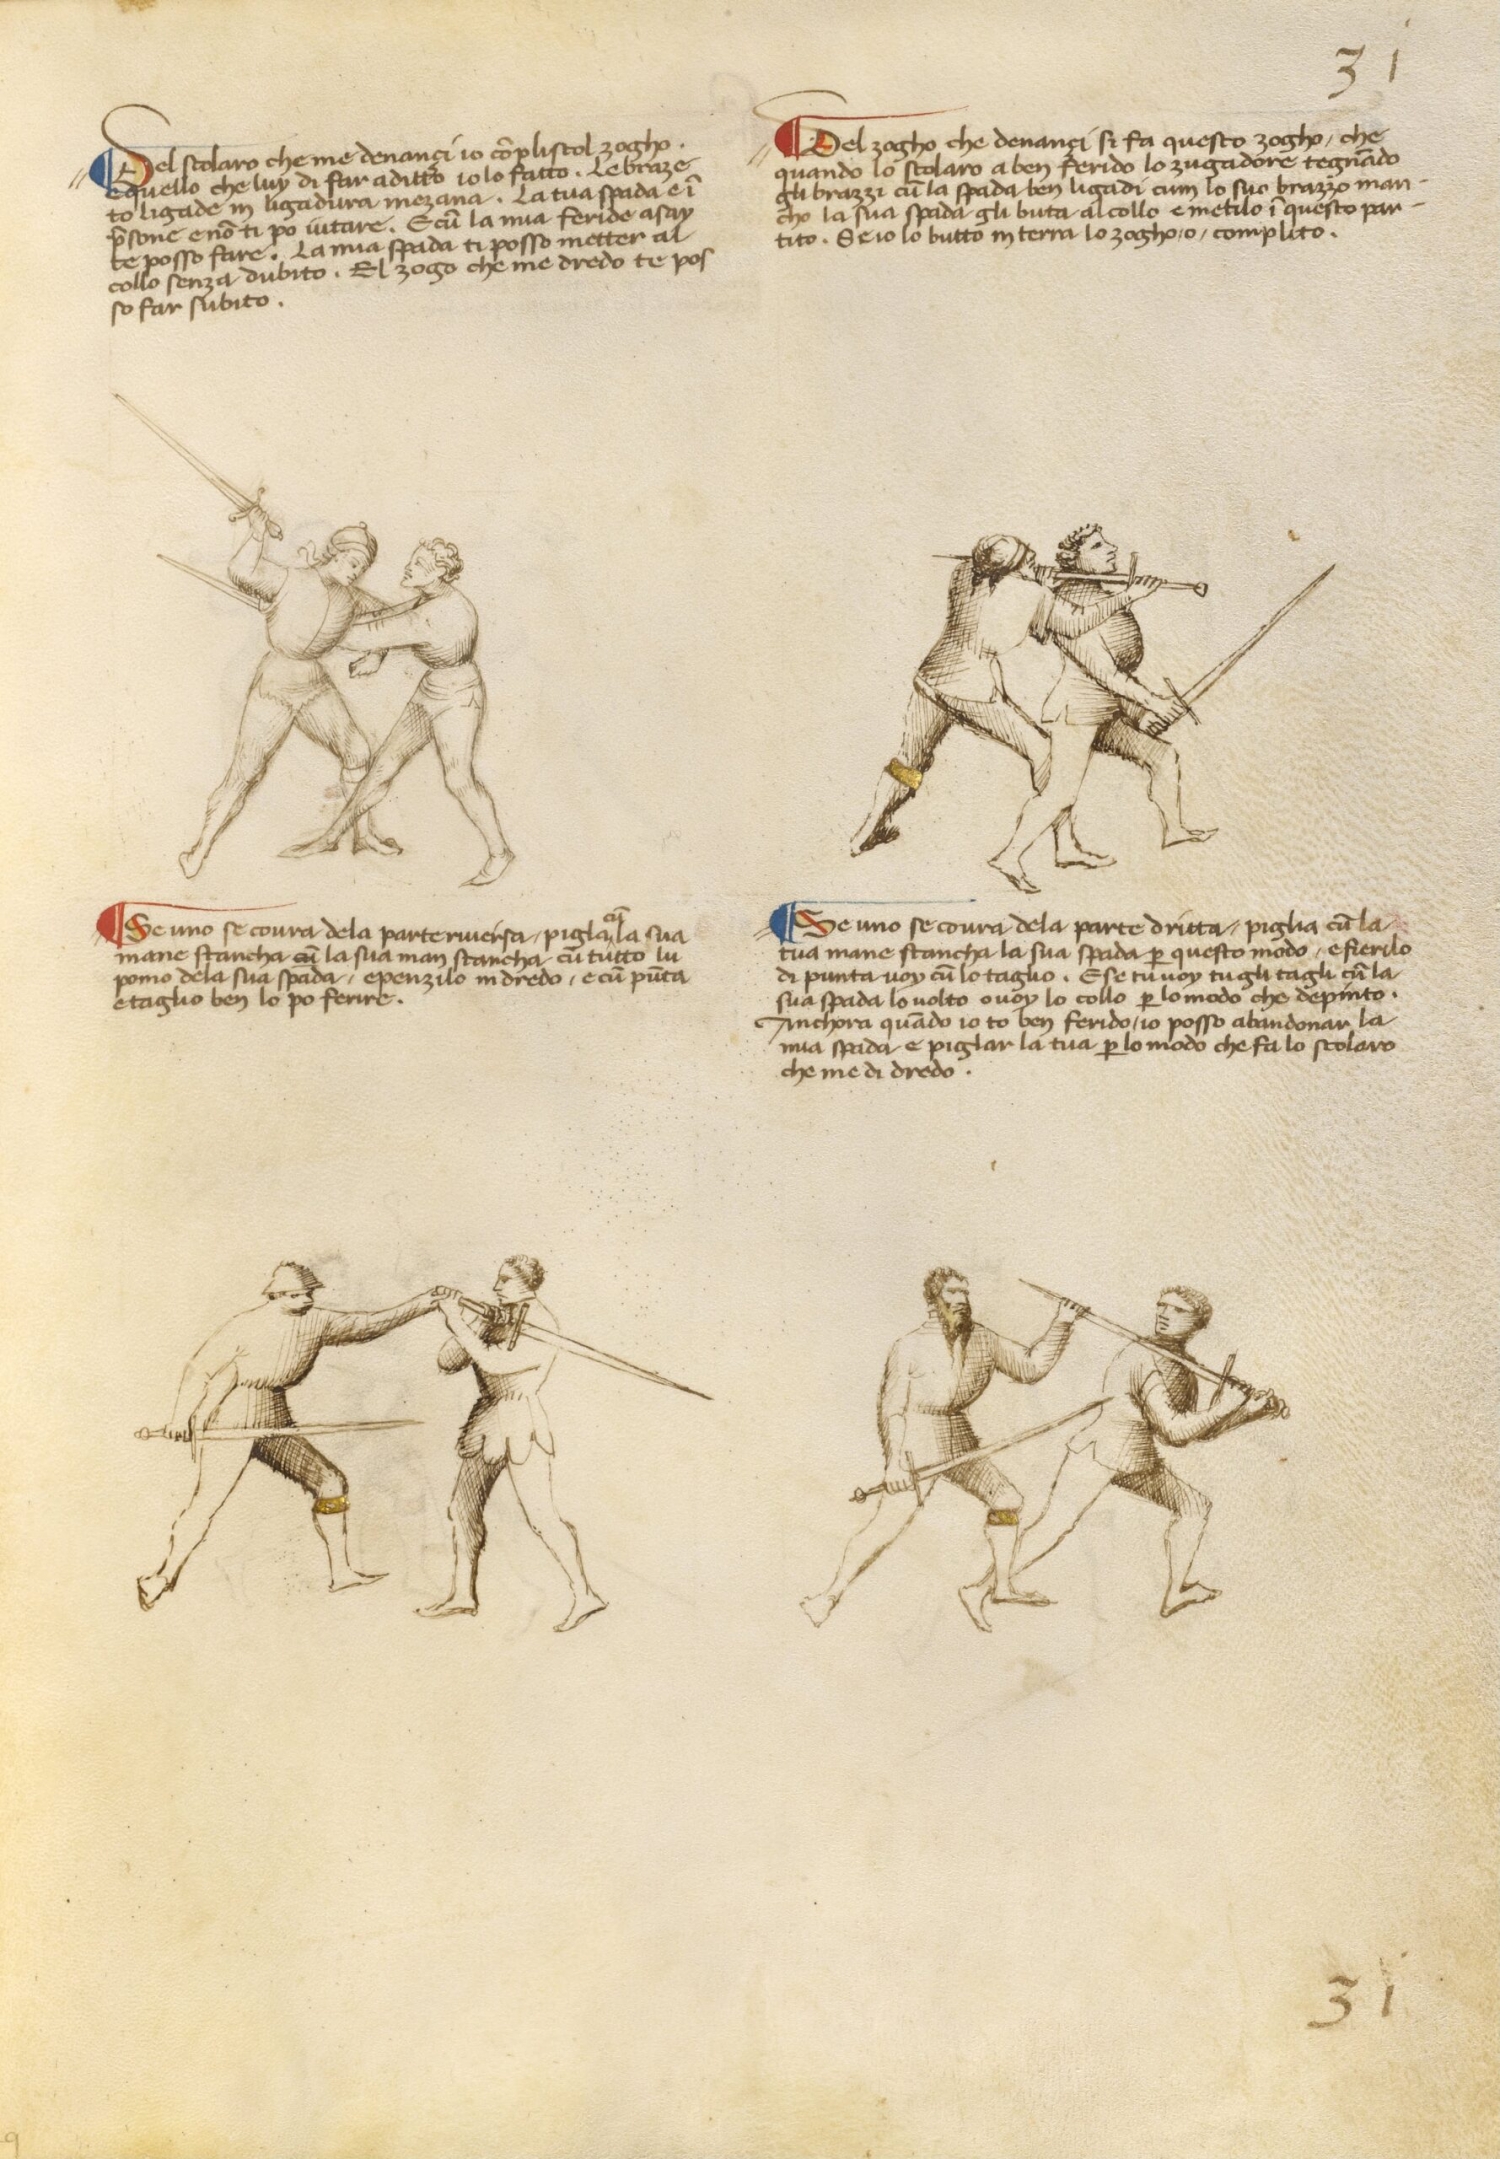 31
Del scolaro che me denançi io cõplisco'l zogho.
E quello che luy di far a ditto io lo fatto. Le braze
to ligade in ligadura mezana. La tua spada e ĩ
p̃sone e nõ ti po iutare. E cũ la mia feride asay
te posso fare. La mia spada ti posso metter al
collo senza dubito. El zogo che me dredo te pos
so far subito.
Del zogho che denançi si fa questo zogho, che
quando lo scolaro a ben ferido lo zugadore tegnãdo
gli brazzi cũ la spada ben ligadi cum lo suo brazzo man-
cho la sua spada gli buta al collo e metilo ĩ questo par-
tito. Se io lo butto in terra lo zogho, o, complito.
Se uno se covra dela parte riversa, pigla cũ la sua
mane stancha cũ la sua man stancha cũ tutto lu
pomo dela sua spada, e penzilo in dredo, e cũ pũta
e taglio ben lo po ferire.
Se uno se covra dela parte dritta, piglia cũ la
tua mane stancha la sua spada ꝑ questo modo, e fierilo
di punta voy cũ lo taglio. E se tu voy tu gli tagli cũ la
sua spada lo volto o voy lo collo ꝑ lo modo che depinto.
Anchora quãdo io to ben ferido, io posso abandonar la
mia spada e piglar la tua ꝑ lo modo che fa lo scolaro
che me di dredo.
31
9